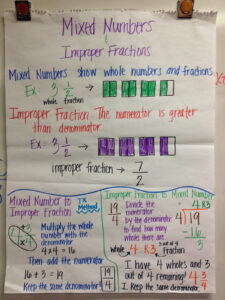 Mixed Numbers
&
Improper Fractions
Mixed Numbers show whole numbers and fractions
Ex: 3 1/2 →
whole fraction
Improper Fraction The numerator is greater
than denominator
Ex: 3 1/2 →
improper fraction → 7/2
Mixed Number to
Improper Fraction
Method
Multiply the whole
number with the
denominator
4 x 4 = 16
Then add the numerator
16 + 3 = 19
Keep the same denominator!
19/4
Improper Fraction to Mixed Number
19/4
Divide the
numerator
by the denominator
to find how many
wholes there are.
4 R3
4)19
-16
3
whole 4 R3
out of 4
fraction
I have 4 wholes and 3
out of 4 remaining! 4 3/4
I keep the same denominator